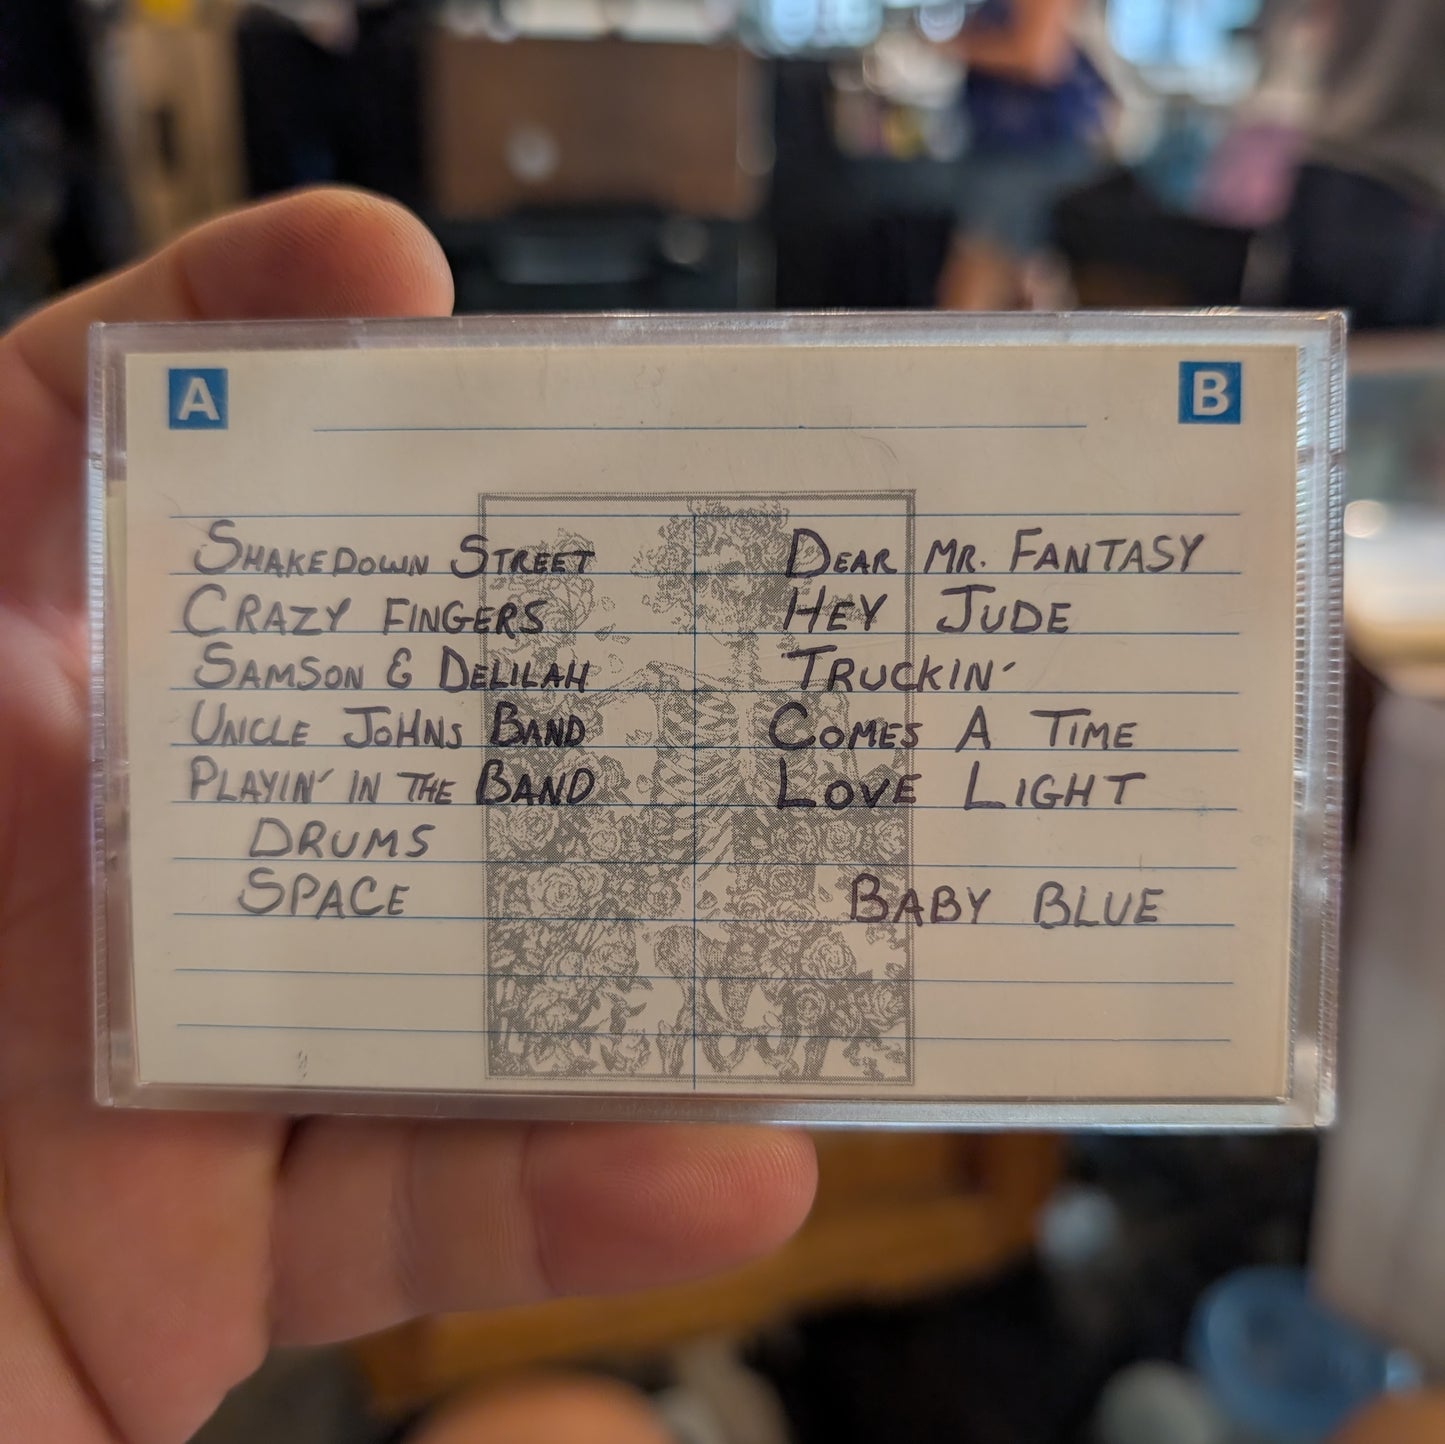 A
B
Shakedown Street
Crazy Fingers
Samson & Delilah
Uncle Johns Band
Playin' in the Band
Drums
Space
Dear Mr. Fantasy
Hey Jude
Truckin'
Comes A Time
Love Light
Baby Blue